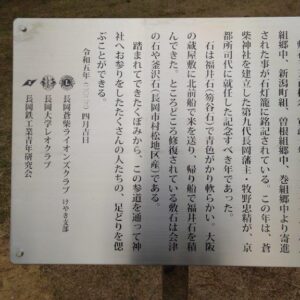 組郷中、新潟町組、曽根組郷中、巻組郷中より寄進
された事が石灯籠に銘記されている。この年は、蒼
柴神社を建立した第九代長岡藩主・牧野忠精が、京
都所司代に就任した記念すべき年であった。
石は福井石(笏谷石)で青色がかり軟らかい。大阪
の蔵屋敷に北前船で米を送り、帰り船で福井石を積
んできた。ところどころ修復されている敷石は会津
の石や釜沢石(長岡市村松地区産)である。
踏まれてできたくぼみから、この参道を通って神
社へお参りをしたたくさんの人たちの、足どりを偲
ぶことができる。
令和五年(二〇二三)四月吉日
長岡蒼柴ライオンズクラブ けやき支部
長岡大学レオクラブ
長岡鉄工業青年研究会